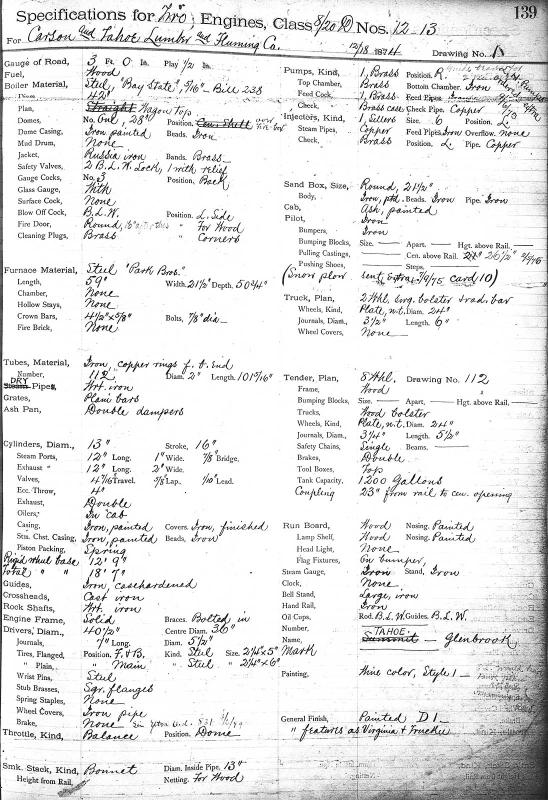 139
Specifications for Two Engines, Class 8/20 D Nos. 12-13
For Carson and Tahoe Lumber and Fluming Co.
12/18 1874 Drawing No.
Gauge of Road, 3 Ft. 0 In. Play 1/2 In.
Fuel, Wood
Boiler Material, Steel, "Bay State", 5/16" - Bill 238
42"
Plan, Straight Wagon Top
Domes, No. One, 28" Position,
Dome Casing, Iron painted Beads, Iron
Mud Drum, None
Jacket, Russia iron Bands, Brass
Safety Valves, 2 B.L.W. Lock, 1 with relief
Gauge Cocks, No. 3 Position, Back
Glass Gauge, With
Surface Cock, None
Blow Off Cock, B.L.W. Position, L. Side
Fire Door, Round, For Wood
Cleaning Plugs, Brass " Corners
Furnace Material, Steel "Park Bros."
Length, 59" Width, 21 1/2" Depth, 50 3/4"
Chamber, None
Hollow Stays, None
Crown Bars, 4 1/2" x 5/8" Bolts, 7/8" dia
Fire Brick, None
Tubes, Material, Iron, copper rings f. b. End
Number, 112 Diam. 2" Length, 101 9/16"
DRY
Steam Pipes, Wrt. iron
Grates, Plain bars
Ash Pan, Double dampers
Cylinders, Diam., 13" Stroke, 16"
Steam Ports, 12" Long. 1" Wide. 7/8" Bridge.
Exhaust " 12" Long. 2" Wide.
Valves, 4 7/16 Travel. 5/8" Lap. 1/10" Lead.
Ecc. Throw, 4"
Exhaust, Double
Oilers, In cab
Casing, Iron, painted Covers, Iron, finished
Stm. Chst. Casing, Iron, painted Beads, Iron
Piston Packing, Spring
Rigid wheel base 12' 9"
Total " " 18' 7"
Guides, Iron, casehardened
Crossheads, Cast iron
Rock Shafts, Wrt. iron
Engine Frame, Solid Braces, Bolted in
Drivers, Diam., 40 1/2" Centre Diam. 36"
Journals, 7" Long. Diam. 5 1/2"
Tires, Flanged, Position, F. & B. Kind. Steel Size, 2 1/4 x 5"
" Plain, " Main " Steel " 2 1/4" x 6"
Wrist Pins, Steel
Stub Brasses, Sqr. flanges
Spring Staples, None
Wheel Covers, Iron pipe
Brake, None
Throttle, Kind, Balance Position, Dome
Smk. Stack, Kind, Bonnet Diam. Inside Pipe, 13"
Height from Rail, Netting, For Wood
Pumps, Kind, 1, Brass Position, R.
Top Chamber, Brass Bottom Chamber, Iron
Feed Cock, 1, Brass Feed Pipes,
Check, Brass case Check Pipe, Copper
Injectors, Kind, 1, Sellers Size, 6 Position, L.
Steam Pipes, Copper Feed Pipes, Iron Overflow, none
Check, Brass Position, L. Pipe, Copper
Sand Box, Size, Round, 21 1/2"
Body, Iron, ptd. Beads, Iron Pipe, Iron
Cab, Ash, painted
Pilot, Iron
Bumpers, Iron
Bumping Blocks, Size. — Apart. — Hgt. above Rail. —
Pulling Castings, Cen. above Rail. 26 1/2"
Pushing Shoes, Steps,
(Snow plow sent, Extra 7/9/75 card, 10)
Truck, Plan, 2 Whl. swg. bolster & rad. bar
Wheels, Kind, Plate, n.t. Diam. 24"
Journals, Diam., 3 1/2" Length, 6"
Wheel Covers, None
Tender, Plan, 8 Whl. Drawing No. 112
Frame, Wood
Bumping Blocks, Size. — Apart, — Hgt. above Rail, —
Trucks, Wood bolster
Wheels, Kind, Plate, n.t. Diam. 24"
Journals, Diam., 3 1/4" Length, 5 1/2"
Safety Chains, Single Beams, —
Brakes, Double
Tool Boxes, Top
Tank Capacity, 1200 Gallons
Coupling 23" from rail to cen. opening
Run Board, Wood Nosing, Painted
Lamp Shelf, Wood Nosing, Painted
Head Light, None
Flag Fixtures, On bumper,
Steam Gauge, Iron Stand, Iron
Clock, None
Bell Stand, Large, iron
Hand Rail, Iron
Oil Cups, Rod. B.L.W. Guides. B.L.W.
Number,
TAHOE
Name, Summit — Glenbrook
Mark
Painting, Wine color, Style 1 —
General Finish, Painted D 1 —
" features as Virginia & Truckee